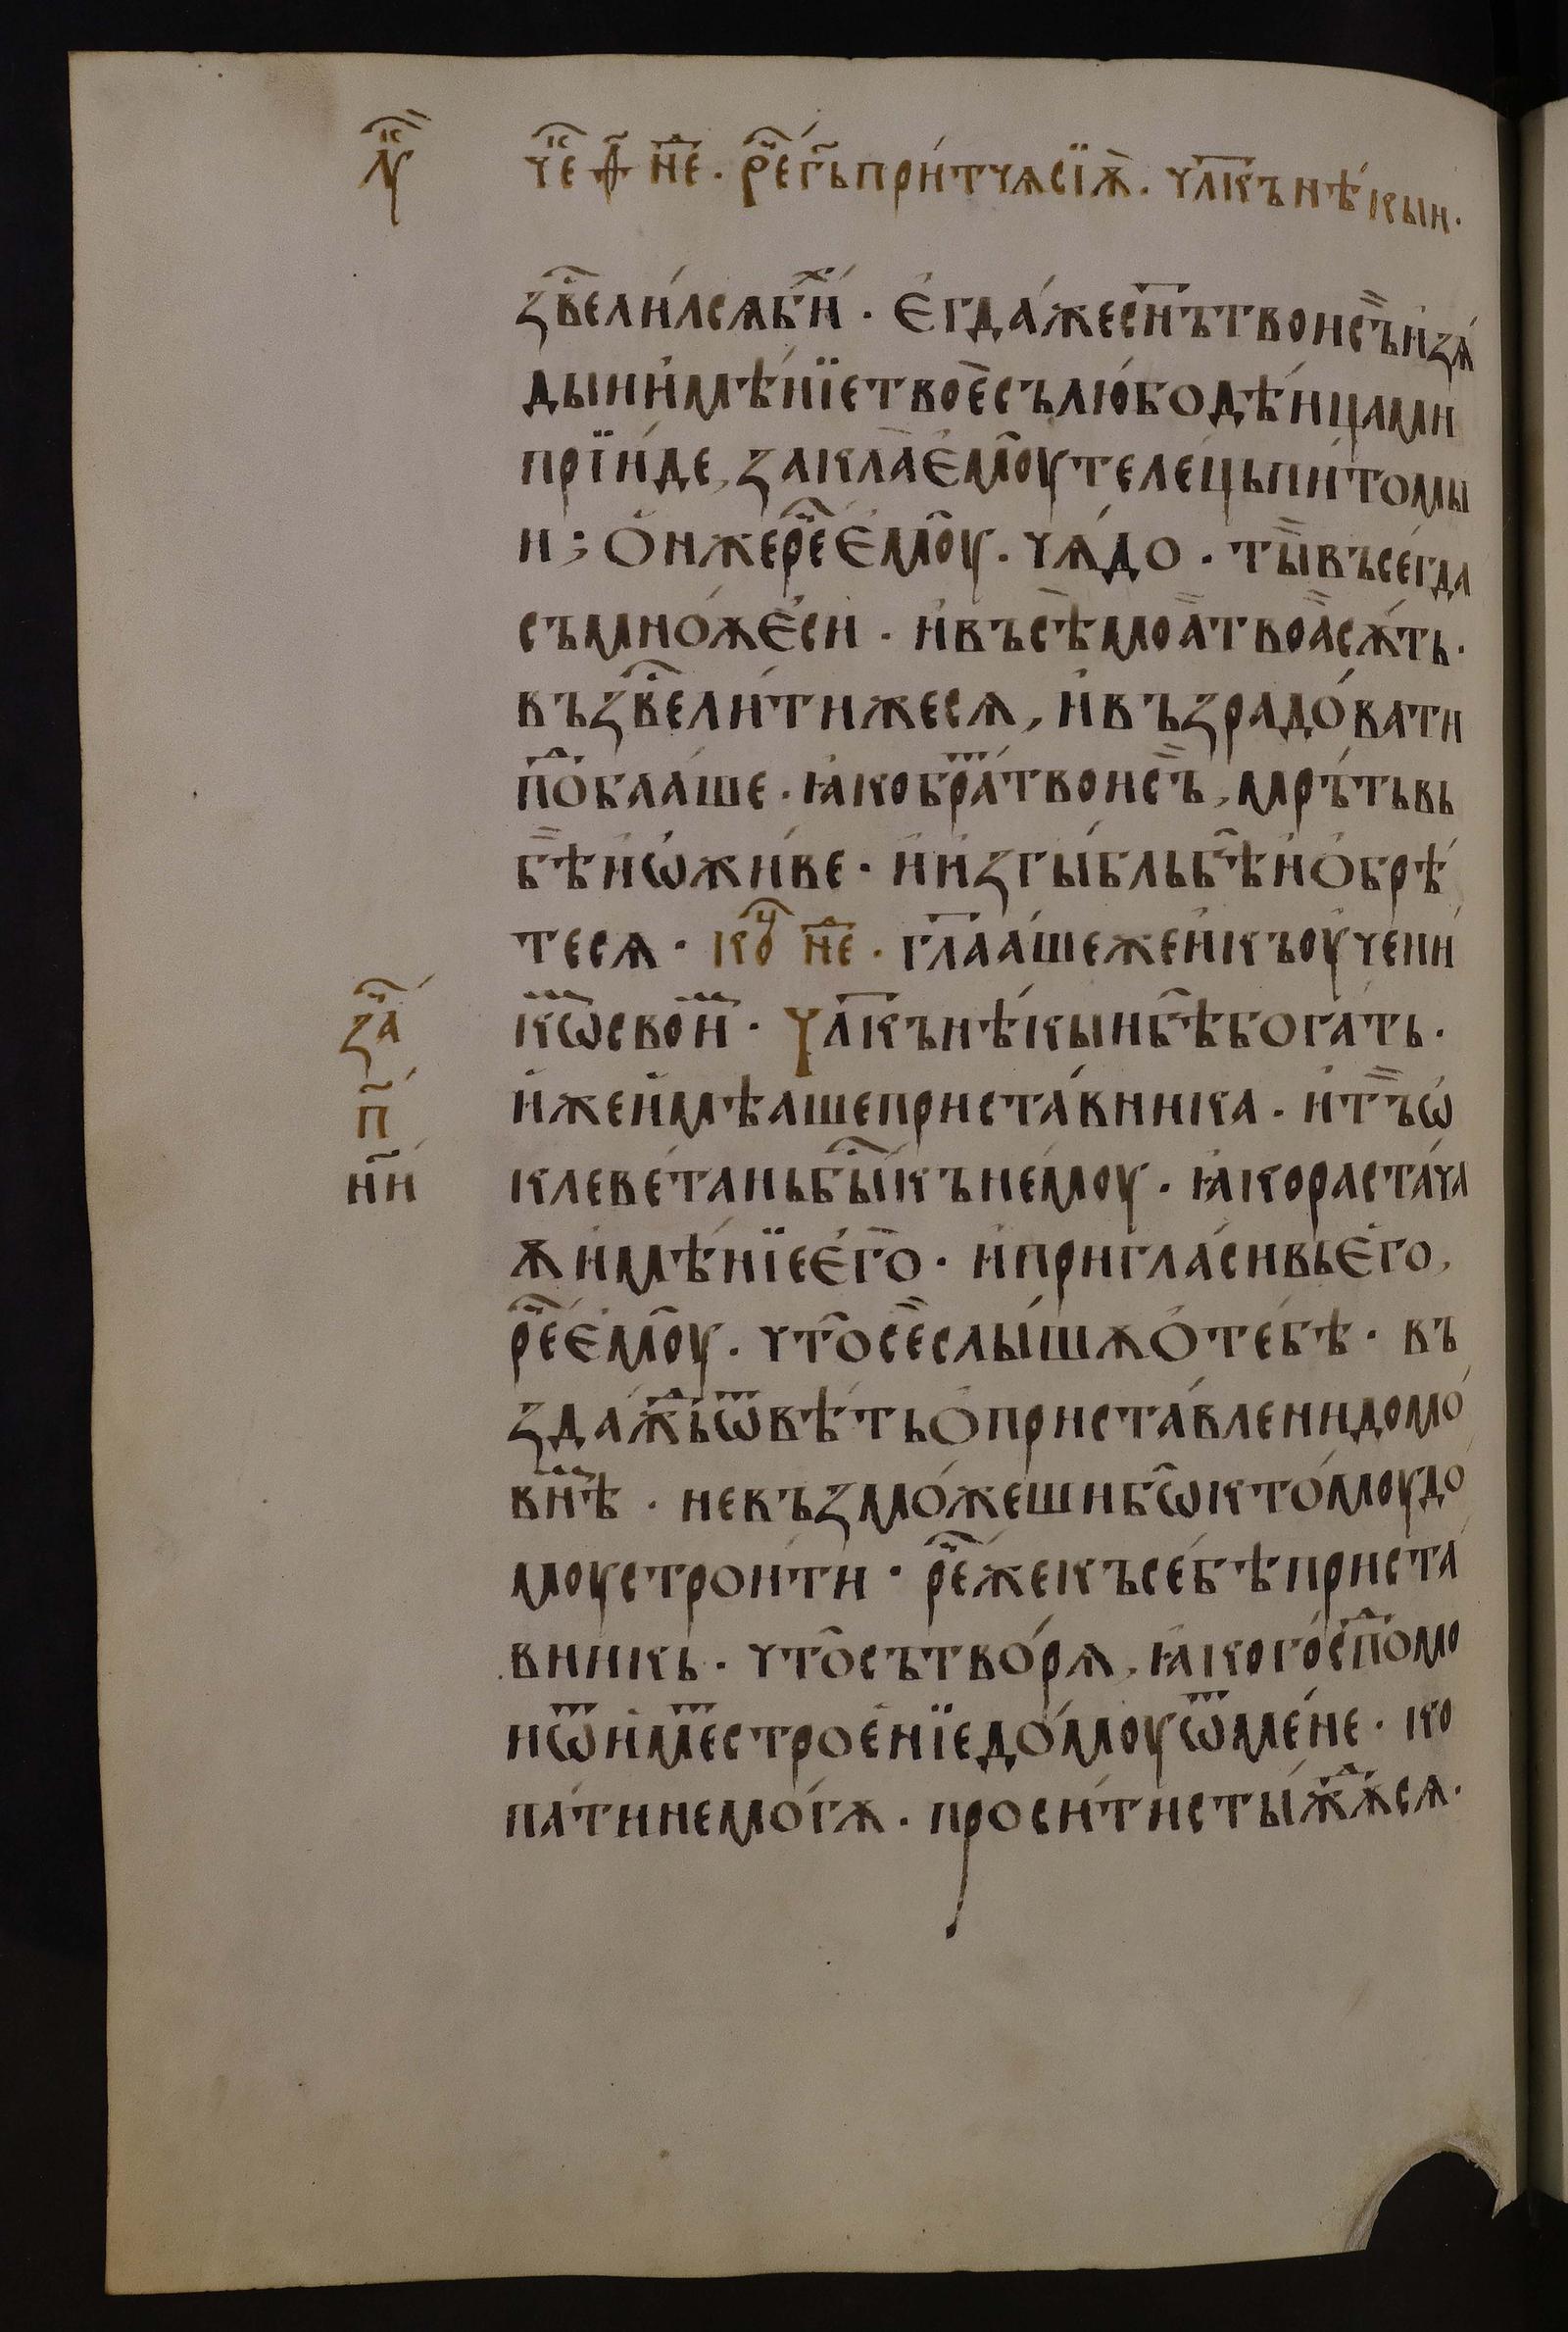 чⷭ҇е а҃ нⷣе. рⷱ҇е гь҃ при́тчѧ сїѧ̀. чл҃къ нѣ́кыи.
зⷡ҇ели́лсѧ бⷯи́. Є҆гда́же сн҃ъ твои съ̏ и҆зѧ́
ды и҆мѣ́нїе твоѐ съ лю́бодѣ́ицами
прїи́де, закла̀ є҆моу̑ теле́ць пи́томы
и; Ѻ҆нже рⷱ҇е є҆моу̑. чѧ́до. ты̏ въсе́гда
съ мно́ѫ є҆си. и҆ въсѣ̀ моа̏ твоа̏ сѫ́ть.
възⷡ҇ели́тижесѧ, и҆ възрадо́вати
поⷣ҇бааше. ꙗ҆ко браⷮ҇ твои съ̏, мръ́тьвь
бѣ̏ и҆ ѡ҆жи́ве. и҆ и҆згы́бль бѣ̑ и҆ ѻ҆брѣ́
тесѧ. коⷰ҇ нⷣе. гл҃аа́шеже и҆ къ оу҆чени
кѡⷨ҇ свои́ⷨ. Чл҃къ нѣ́кыи бѣ̑ бога́ть.
и҆же и҆мѣаше приста́вника. и҆ тъ̏ ѡ҆
клеве́тань быⷭ҇ къ не́моу. ꙗ҆ко раста́ча
ѫ и҆мѣ́нїе є҆го̀. и҆ пригла́сивь є҆го,
рⷱ҇е є҆моу̑. что̑ се̏ слы́шѫ ѻ҆ те́бѣ. въ
зда́жⷣь ѿвѣ́ть ѻ҆ приста́влени домо́
внⷨѣ. не възмо́жеши бѡ̑ к то́моу до
моу строи́ти. рⷱ҇е́же къ се́бѣ приста́
вникь. что̑ сътво́рѧ, ꙗ҆ко го́споⷣ҇ мо
и ѿи́меⷮ строе́нїе до́моу ѿ ме́не. ко
па́ти не мо́гѫ. проси́ти сты́жⷣѫсѧ.
зⷱ҇а
п҃
н҃и